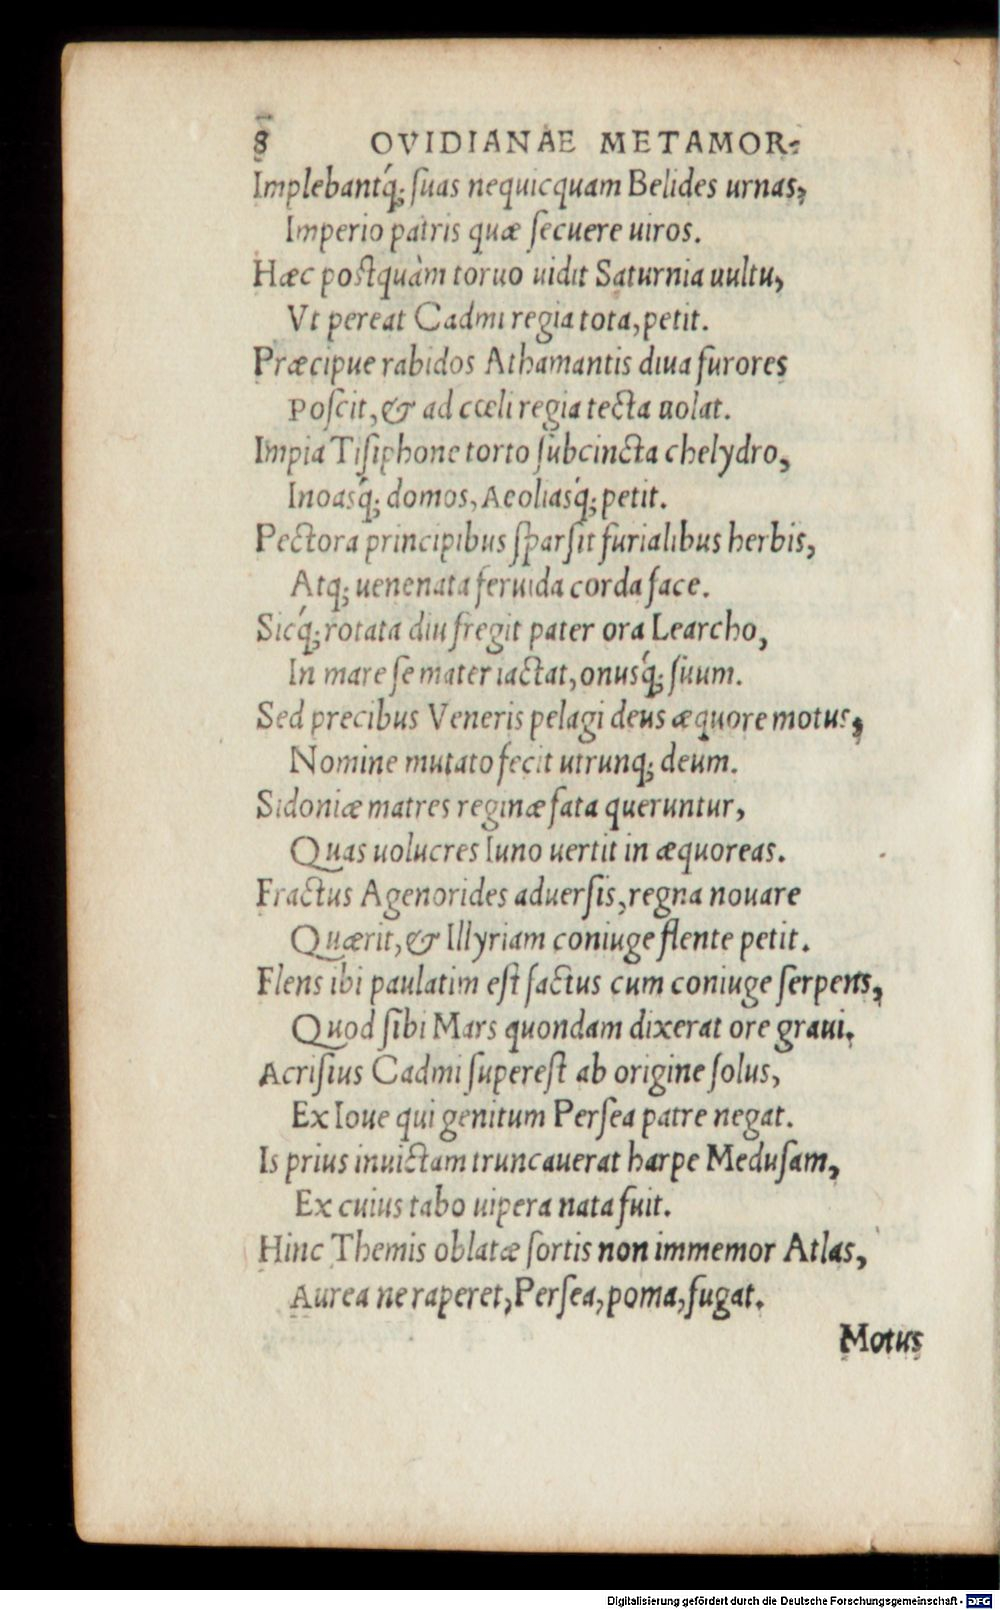 8 OVIDIANAE METAMOR-
Implebantq́; ſuas nequicquam Belides urnas,
Imperio patris quæ ſecuere uiros.
Hæc postquàm toruo uidit Saturnia uultu,
Vt pereat Cadmi regia tota, petit.
Præcipue rabidos Athamantis diua furores
Poſcit, & ad cœli regia tecta uolat.
Impia Tiſiphone torto ſubcincta chelydro,
Inoasq́; domos, Aeoliasq́; petit.
Pectora principibus ſparſit furialibus herbis,
Atq; uenenata feruida corda face.
Sicq́; rotata diu fregit pater ora Learcho,
In mare ſe mater iactat, onusq́; ſuum.
Sed precibus Veneris pelagi deus æquore motus,
Nomine mutato fecit utrunq; deum.
Sidoniæ matres reginæ fata queruntur,
Quas uolucres Iuno uertit in æquoreas.
Fractus Agenorides aduerſis, regna nouare
Quærit, & Illyriam coniuge flente petit.
Flens ibi paulatim eſt factus cum coniuge ſerpens,
Quod ſibi Mars quondam dixerat ore graui.
Acriſius Cadmi ſupereſt ab origine ſolus,
Ex Ioue qui genitum Perſea patre negat.
Is prius inuictam truncauerat harpe Meduſam,
Ex cuius tabo uipera nata fuit.
Hinc Themis oblatæ ſortis non immemor Atlas,
Aurea ne raperet, Perſea, poma, fugat.
Motus
Digitalisierung gefördert durch die Deutsche Forschungsgemeinschaft - DFG